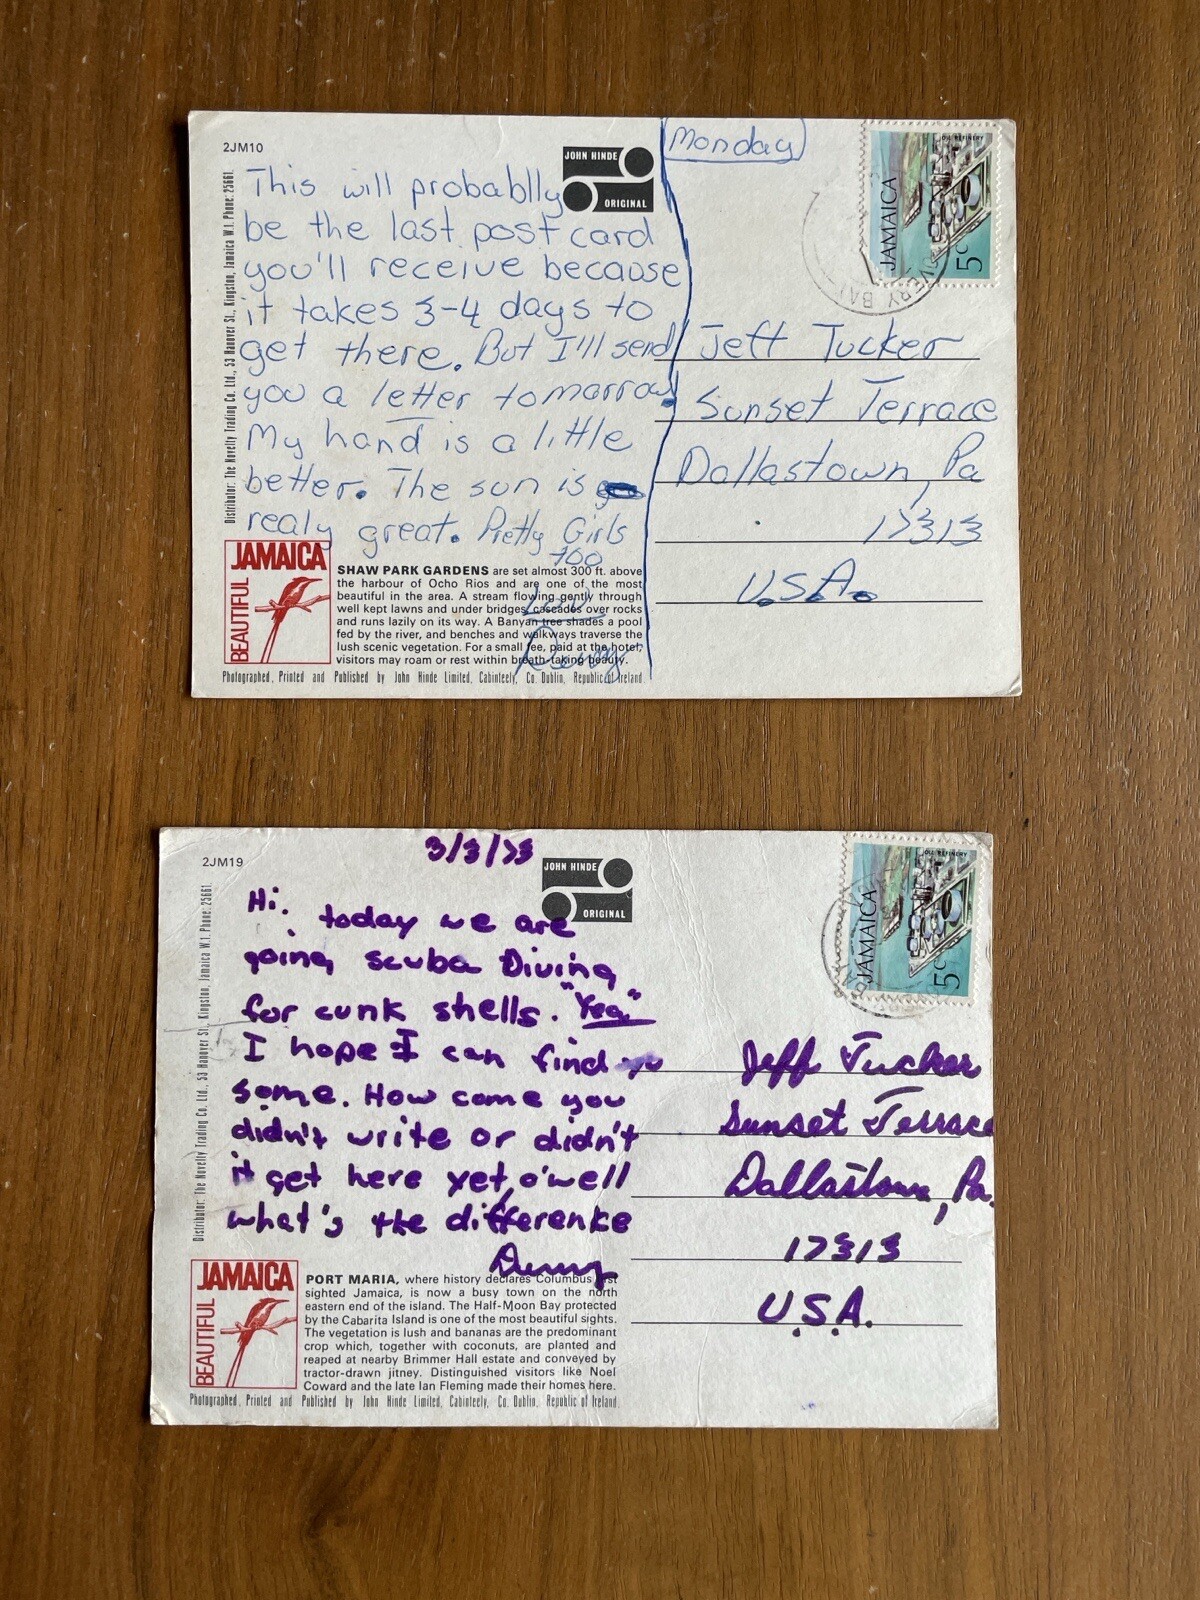 2JM10
JOHN HINDE
ORIGINAL
Monday
This will probablly
be the last post card
you'll receive because
it takes 3-4 days to
get there. But I'll send
you a letter tomorrow.
My hand is a little
better. The sun is
realy great. Pretty Girls
too
Dewy
Jeff Tucker
Sunset Terrace
Dallastown, Pa
17313
U.S.A.
JAMAICA
OIL REFINERY
5c
Distributor: The Novelty Trading Co. Ltd., 53 Hanover St., Kingston, Jamaica W.I. Phone: 25661.
BEAUTIFUL
JAMAICA
SHAW PARK GARDENS are set almost 300 ft. above
the harbour of Ocho Rios and are one of the most
beautiful in the area. A stream flowing gently through
well kept lawns and under bridges, cascades over rocks
and runs lazily on its way. A Banyan tree shades a pool
fed by the river, and benches and walkways traverse the
lush scenic vegetation. For a small fee, paid at the hotel,
visitors may roam or rest within breath-taking beauty.
Photographed, Printed and Published by John Hinde Limited, Cabinteely, Co. Dublin, Republic of Ireland.
2JM19
3/3/73
JOHN HINDE
ORIGINAL
Hi. today we are
going scuba Diving
for cunk shells. "Yea"
I hope I can find you
some. How come you
didn't write or didn't
it get here yet, o'well
what's the differenke
Dewy
Jeff Tucker
Sunset Terrace
Dallastown, Pa.
17313
U.S.A.
JAMAICA
OIL REFINERY
5c
Distributor: The Novelty Trading Co. Ltd., 53 Hanover St., Kingston, Jamaica W.I. Phone: 25661.
BEAUTIFUL
JAMAICA
PORT MARIA, where history declares Columbus first
sighted Jamaica, is now a busy town on the north
eastern end of the island. The Half-Moon Bay protected
by the Cabarita Island is one of the most beautiful sights.
The vegetation is lush and bananas are the predominant
crop which, together with coconuts, are planted and
reaped at nearby Brimmer Hall estate and conveyed by
tractor-drawn jitney. Distinguished visitors like Noel
Coward and the late Ian Fleming made their homes here.
Photographed, Printed and Published by John Hinde Limited, Cabinteely, Co. Dublin, Republic of Ireland.